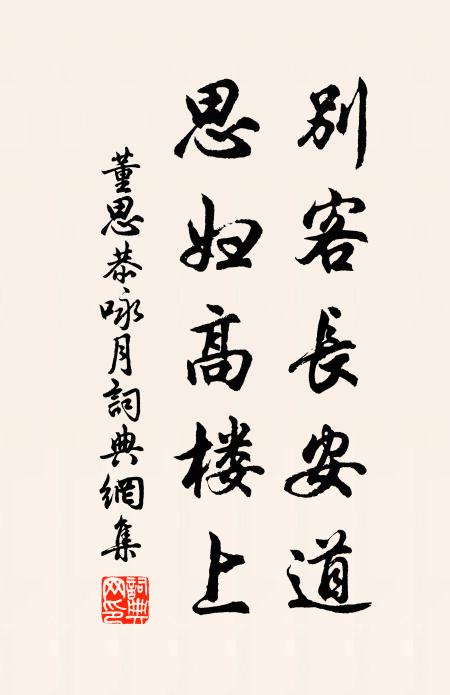 別客長安道
思妇高楼上
董思恭咏月詞典網集
詞典网印